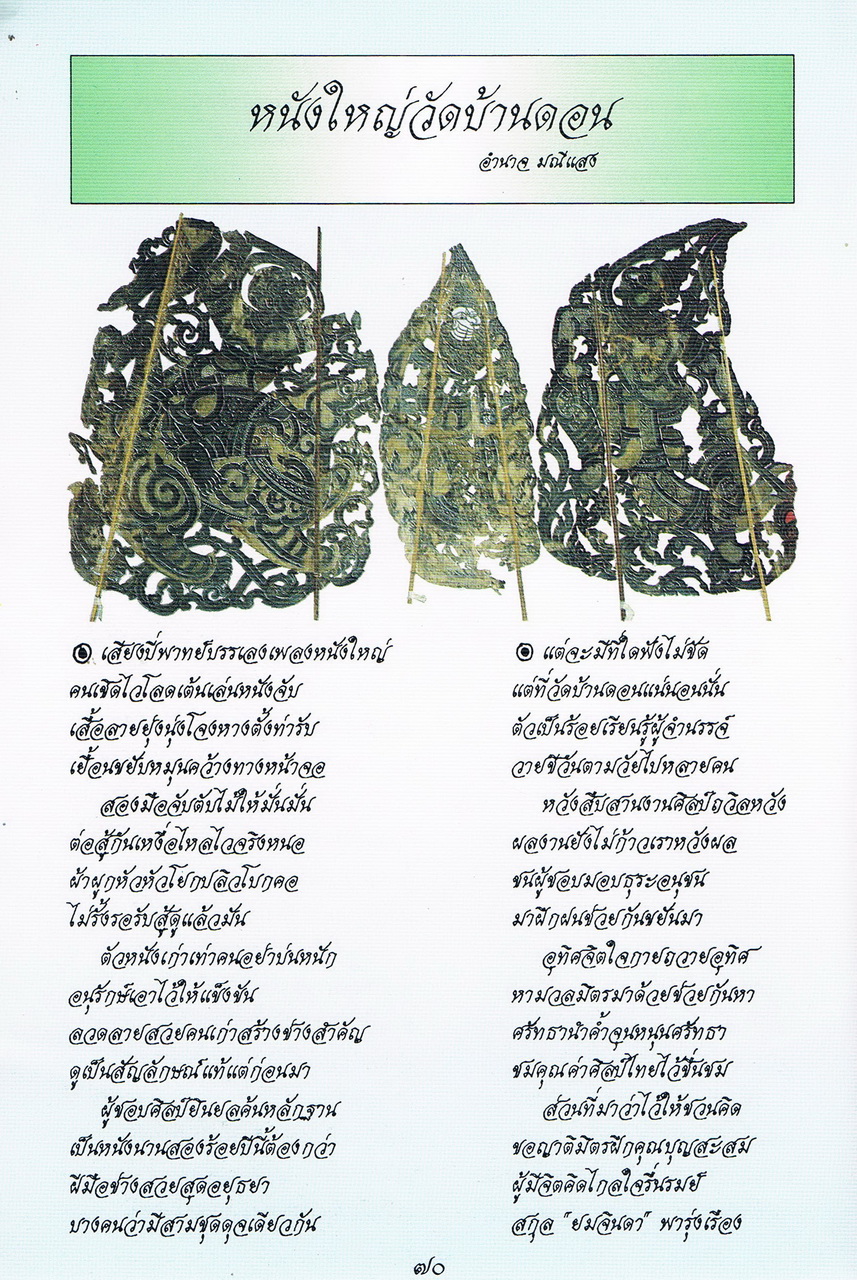 หนังใหญ่วัดบ้านดอน
อำนาจ มณีแสง
เสียงปี่พาทย์บรรเลงเพลงหนังใหญ่
คนเชิดไวโลดเต้นเล่นหนังจับ
เสื้อลายยุ่งนุ่งโจงหางตั้งท่ารับ
เยื้อนขยับหมุนคว้างทางหน้าจอ
สองมือจับตับไม้ให้มั่นมั่น
ต่อสู้กันเหงื่อไหลไวจริงหนอ
ผ้าผูกหัวหัวโยกปลิวโบกคอ
ไม่รั้งรอรับสู้ดูแล้วมัน
ตัวหนังเก่าเท่าคนอย่าบ่นหนัก
อนุรักษ์เอาไว้ให้แข็งขัน
ลวดลายสวยคนเก่าสร้างช่างสำคัญ
ดูเป็นสัญลักษณ์แท้แต่ก่อนมา
ผู้ชอบศิลป์ยินยลค้นหลักฐาน
เป็นหนังนานสองร้อยปีนี้ต้องกว่า
ฝีมือช่างสวยสุดอยุธยา
บางคนว่ามีสามชุดดุจเดียวกัน
แต่จะมีที่ใดฟังไม่ชัด
แต่ที่วัดบ้านดอนแน่นอนนั่น
ตัวเป็นร้อยเรียนรู้ผู้จำนรรจ์
วายชีวันตามวัยไปหลายคน
หวังสืบสานงานศิลป์ถวิลหวัง
ผลงานยังไม่ก้าวเราหวังผล
ชนผู้ชอบมอบธุระอนุชน
มาฝึกฝนช่วยกันขยันมา
อุทิศจิตใจกายถวายอุทิศ
หามวลมิตรมาด้วยช่วยกันหา
ศรัทธานำค้ำจุนหนุนศรัทธา
ชมคุณค่าศิลป์ไทยไว้ชื่นชม
ส่วนที่มาว่าไว้ให้ชวนคิด
ขอญาติมิตรฝึกคุณบุญสะสม
ผู้มีจิตคิดไกลใจรื่นรมย์
สกุล "ยมจินดา" พารุ่งเรือง
๗๐